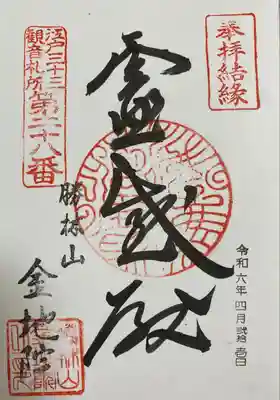 奉拝結縁
令和六年四月弐拾壱日
霊感殿
江戸三十三
観音札所
第二十八番
勝林山
金地院